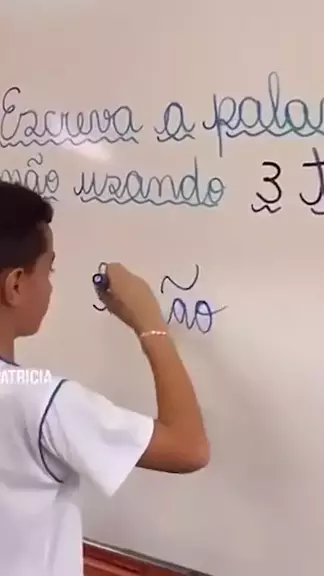 Escreva a pala
mão usando 3 J
ão
ATRICIA